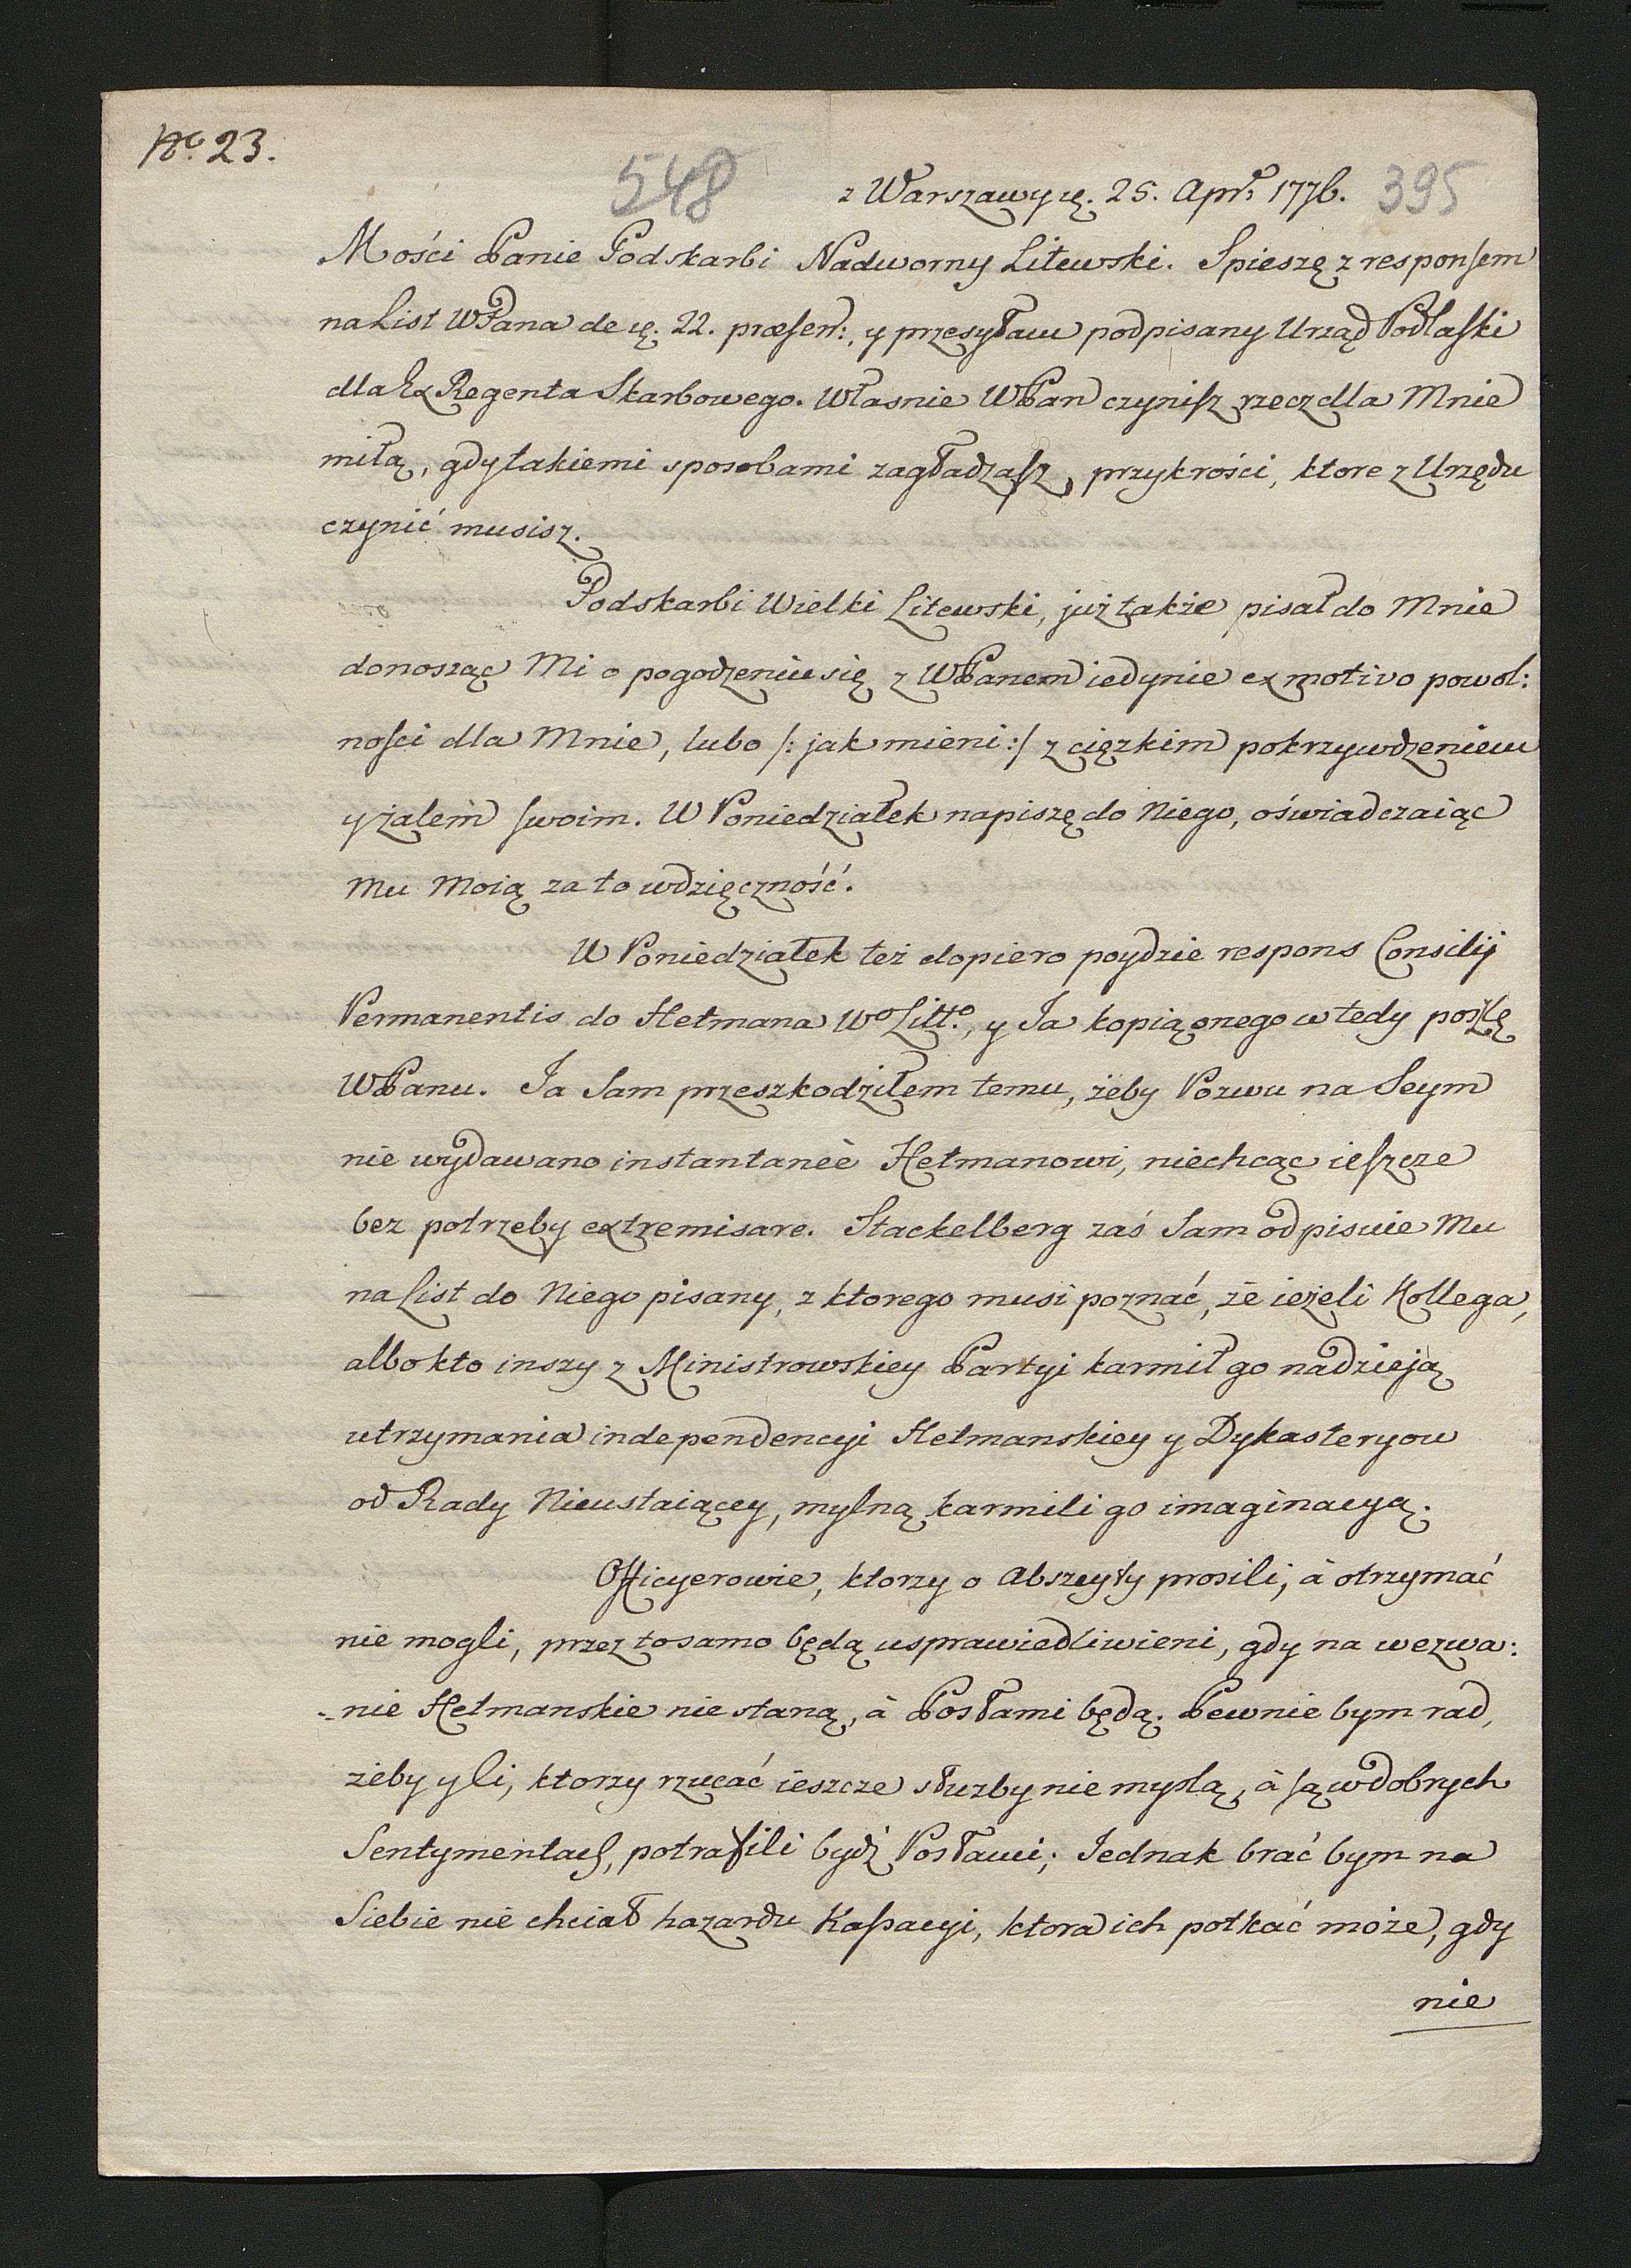 No. 23.
548
z Warszawy ę. 25. Apr. 1776. 395
Mości Panie Podskarbi Nadworny Litewski. Spieszę z responsem
na List WPana de ę. 22. præsen:, y przesyłam podpisany Urząd Podlaski
dla Ex Regenta Skarbowego. Własnie WPan czynisz rzecz dla Mnie
miłą, gdy takiemi sposobami zagładzasz, przykrości, ktore z Urzędu
czynić musisz.
Podskarbi Wielki Litewski, już także pisał do Mnie
donosząc Mi o pogodzeniu się z WPanem iedynie ex motivo powol:
nosci dla Mnie, lubo /: jak mieni :/ z cięzkim pokrzywdzeniem
y żalem swoim. W Poniedziałek napiszę do Niego, oświadczaiąc
Mu Moią za to wdzięczność.
W Poniedziałek też dopiero poydzie respons Consilij
Permanentis do Hetmana Wo Litto, y Ja kopią onego wtedy poszlę
WPanu. Ja Sam przeszkodziłem temu, żeby Pozwu na Seym
nie wydawano instantanèe Hetmanowi, niechcąc ieszcze
bez potrzeby extremisare. Stackelberg zaś Sam odpisuie Mu
na List do Niego pisany, z ktorego musi poznać, że ieżeli Kollega,
albo kto inszy z Ministrowskiey Partyi karmił go nadzieją
utrzymania independencyi Hetmanskiey y Dykasteryow
od Rady Nieustaiącey, mylną karmili go imaginacyą.
Officyerowie, ktorzy o Abszeyty prosili, à otrzymać
nie mogli, przez to samo będą usprawiedliwieni, gdy na wezwa:
nie Hetmanskie nie staną, à Posłami będą. Pewnie bym rad,
żeby y Ci, ktorzy rzucać ieszcze służby nie myslą, à są w dobrych
Sentymentach, potrafili bydź Posłami; Jednak brać bym na
Siebie nie chciał hazardu Kassacyi, ktora ich potkać może, gdy
nie